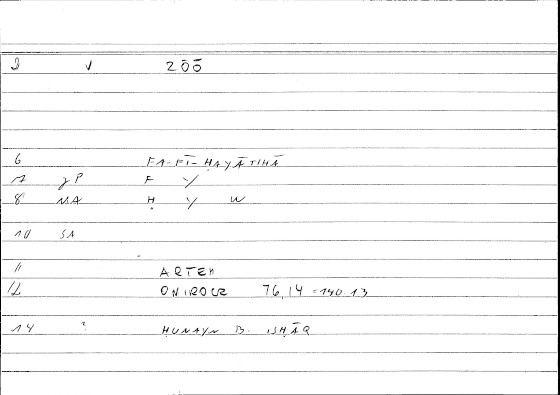 2 v 200
6 FA-FĪ-ḤAYĀTIHĀ
7 gP F Y
8 MA Ḥ Y W
10 SA
11 ARTEM
12 ONIROCR 76,14 = 140.13
14 2 ḤUNAYN B. ISḤĀQ